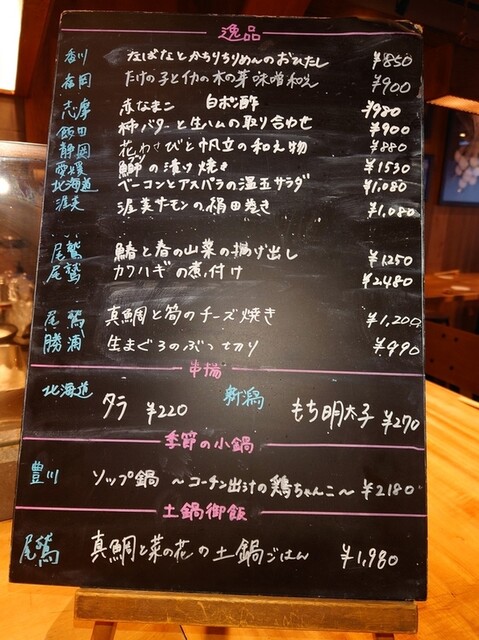 逸品
香川 なばなとかちりちりめんのおひたし ¥850
福岡 たけの子とイカの木の芽味噌和え ¥900
志摩 赤なまこ 白ポン酢 ¥980
飯田 柿バターと生ハムの取り合わせ ¥900
静岡 花わさびと帆立の和え物 ¥880
愛媛 鰤の漬け焼き ¥1530
北海道 ベーコンとアスパラの温玉サラダ ¥1,080
渥美 渥美サーモンの絹田巻き ¥1,080
尾鷲 鰆と春の山菜の揚げ出し ¥1250
尾鷲 カワハギの煮付け ¥2480
尾鷲 真鯛と筍のチーズ焼き ¥1,200
勝浦 生まぐろのぶつ切り ¥990
串揚
北海道 タラ ¥220 新潟 もち明太子 ¥270
季節の小鍋
豊川 ソップ鍋 〜コーチン出汁の鶏ちゃんこ〜 ¥2180
土鍋御飯
尾鷲 真鯛と菜の花の土鍋ごはん ¥1,980